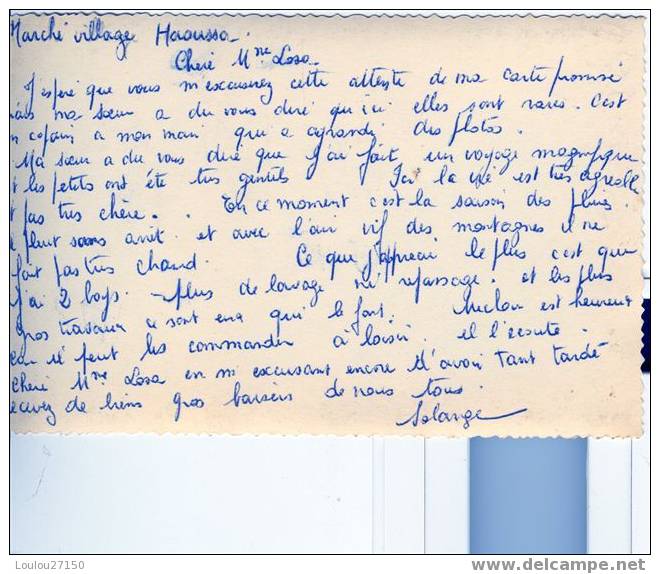 Marché village Haoussa.
Cheré Mme Losa.
J'espère que vous m'excuserez cette attente de ma carte promise
mais ma sœur a du vous dire qu'ici elles sont rares. C'est
un copain a mon mari qui a agrandi des photos.
Ma sœur a du vous dire que j'ai fait un voyage magnifique
et les petits ont été très gentils Ici la vie est très agréable
et pas très chère. En ce moment c'est la saison des pluies.
il pleut sans arrêt. et avec l'air vif des montagnes il ne
fait pas très chaud. Ce que j'apprécie le plus c'est que
j'ai 2 boys. plus de lavage ni repassage. et les plus
gros travaux ce sont eux qui le font. est heureux
car il peut les commander à loisir. et l'écoute.
Cheré Mme Losa en m'excusant encore d'avoir tant tardé
recevez de biens gros baisers de nous tous.
Solange
Loulou27150
delcampe.net